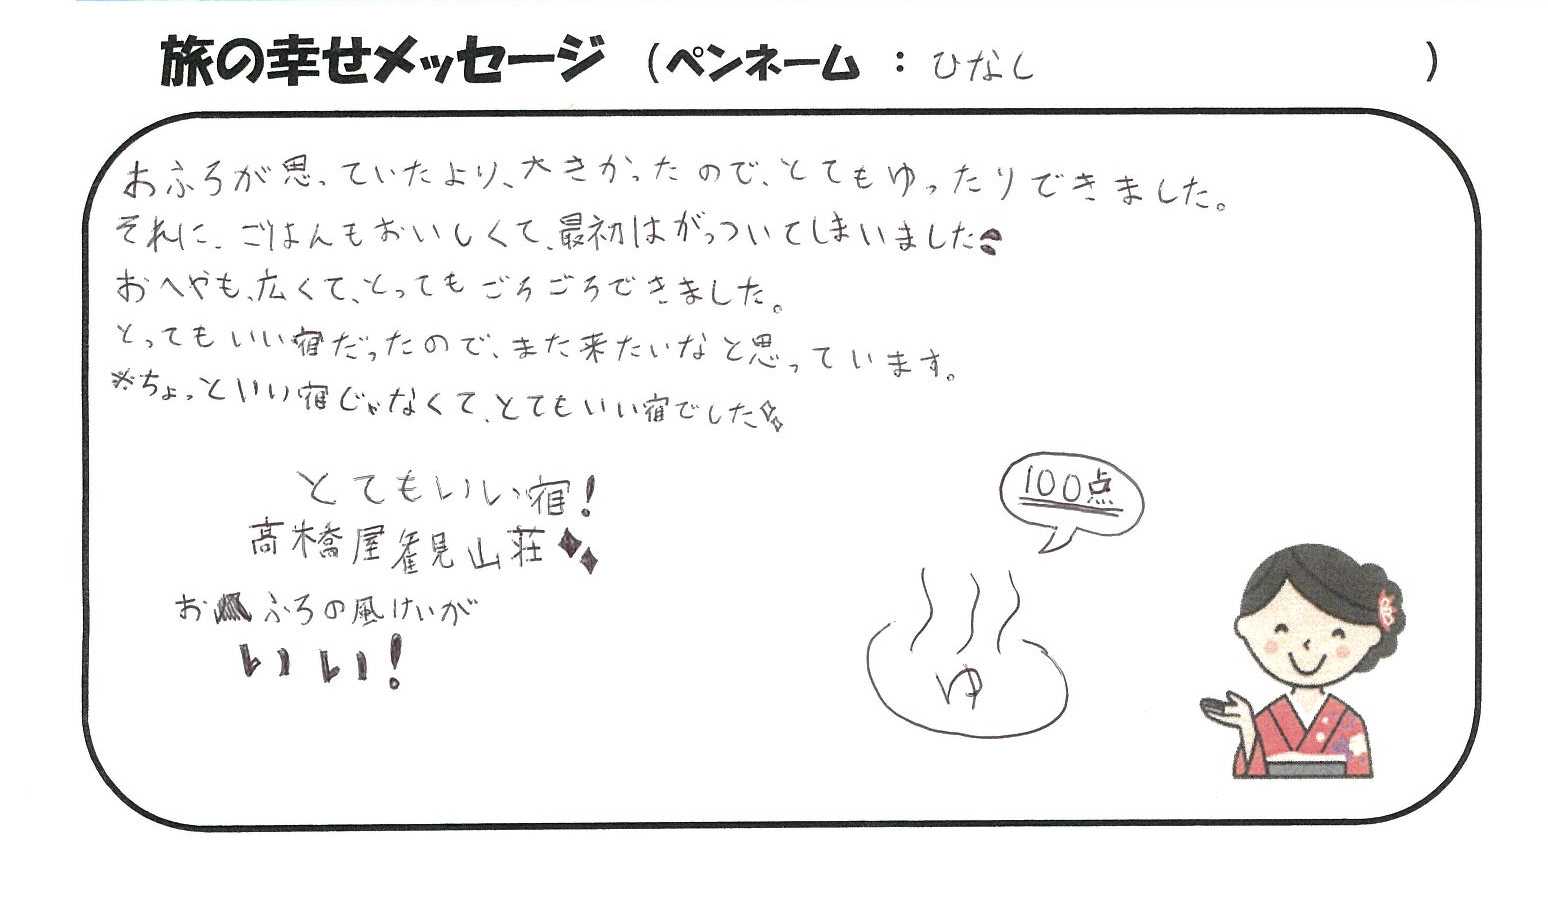 旅の幸せメッセージ (ペンネーム : ひなし )
おふろが思っていたより、大きかったので、とてもゆったりできました。
それに、ごはんもおいしくて、最初はがっついてしまいました
おへやも、広くて、とってもごろごろできました。
とってもいい宿だったので、また来たいなと思っています。
※ちょっといい宿じゃなくて、とてもいい宿でした
とてもいい宿!
高橋屋観山荘
おふろの風けいが
いい!
100点
ゆ